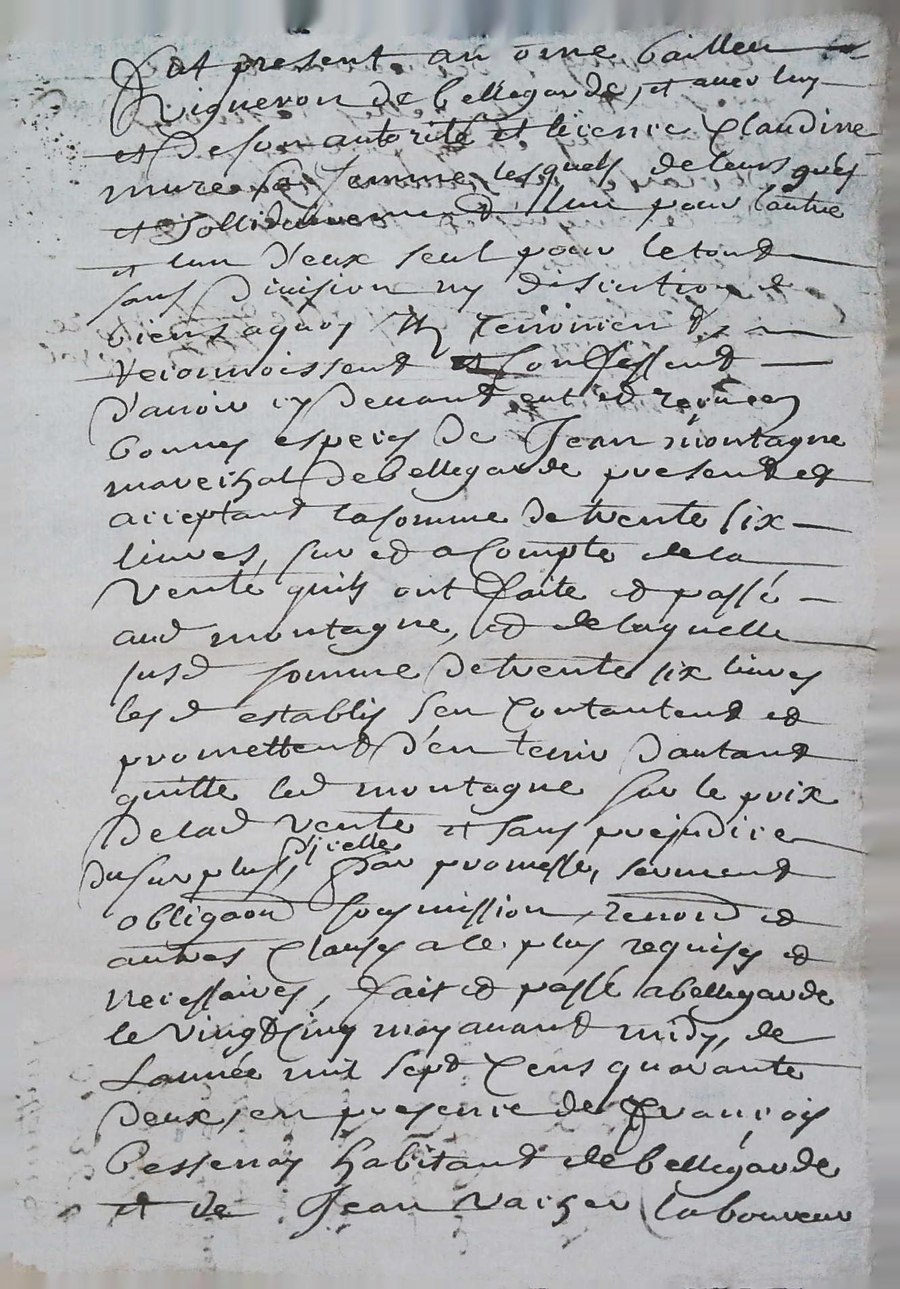 fut present antoine bailleu
Vigneron de bellegarde, et avec luy
et de son autorité et licence Claudine
mure sa femme, lesquels de leurs grés
et sollidairement l'une pour l'autre
et lun d'eux seul pour le tout
sans Division ny discution de
biens aquoy ils renoncent,
reconnoissent et Confessent
d'avoir cy devant eut et receu en
bonnes especes de Jean montagne
marechal de bellegarde present et
acceptant la somme de trente six
livres, sur et a Compte de la
Vente quils ont faite et passé
aud montagne, et de laquelle
susd somme de trente six livres
lesd establis sen Contantent et
promettent d'en tenir d'autant
quitte led montagne sur le prix
de lad vente et sans prejudice
du surplus d'icelle, Par promesse, serment
obligaon soumission, renond et
autres Clauses a ce plus requises et
necessaires, fait et passé a bellegarde
le vingt Cinq may avant midy, de
Lannée mil sept Cens quarante
deux, en presence de françois
bessenay habitant de bellegarde
et de Jean laboureur